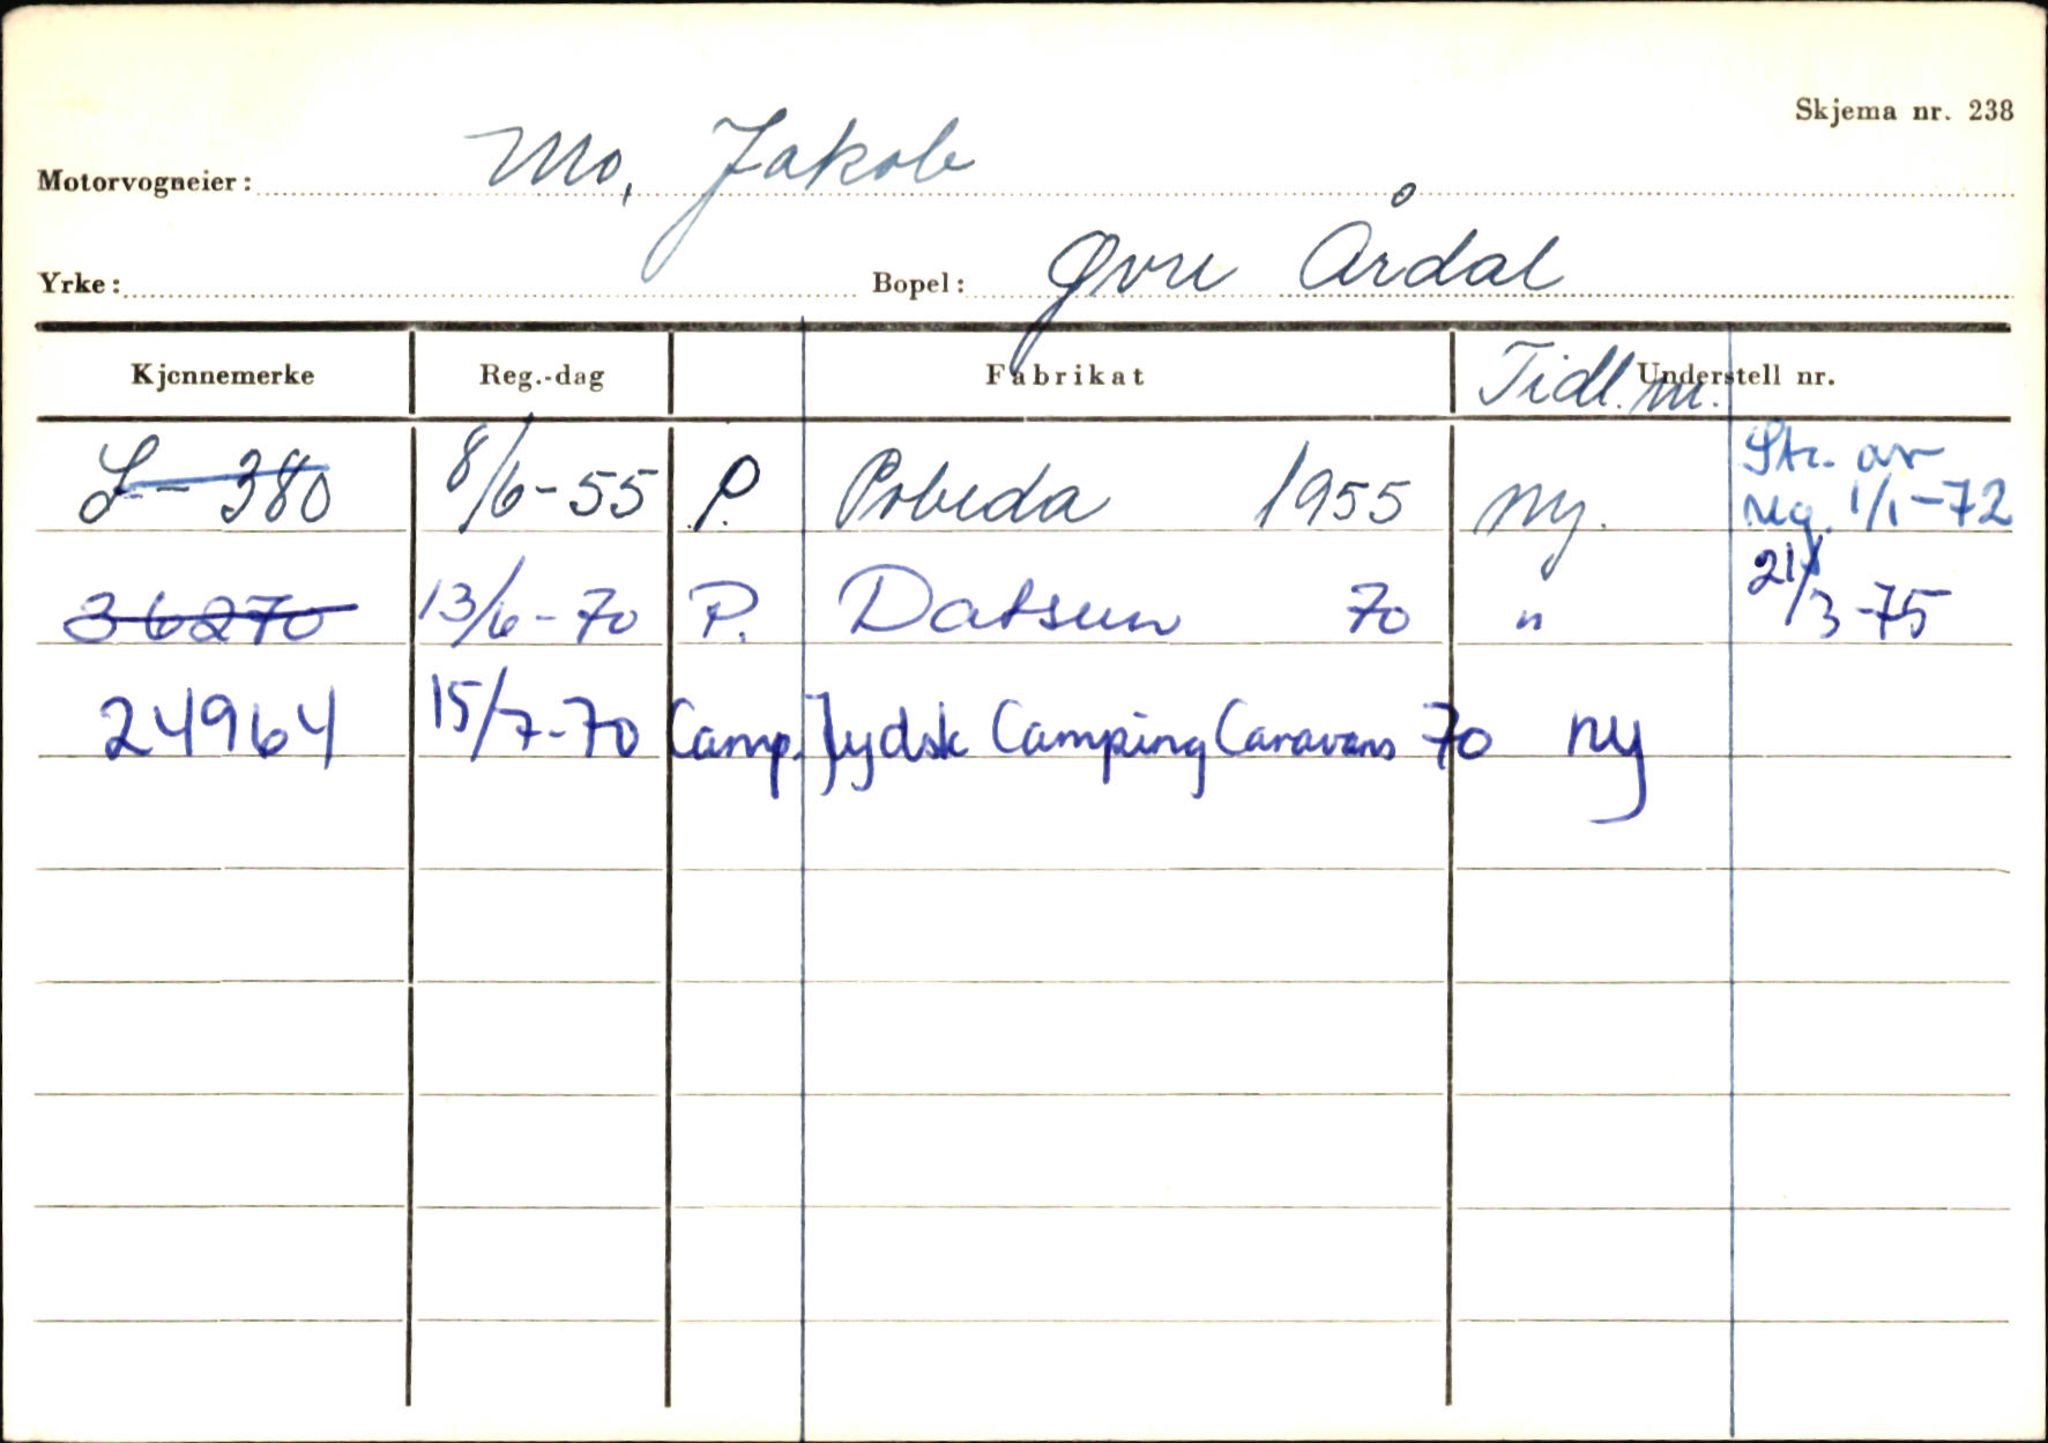 Skjema nr. 238
Motorvogneier: Mo, Jakob
Yrke: Bopel: Øvre Årdal
Kjennemerke Reg.-dag Fabrikat Tidl. nr. Understell nr.
S-380 8/6-55 P. Pobeda 1955 ny. Str. av reg. 1/1-72
36270 13/6-70 P. Datsun 70 " 21/3-75
24964 15/7-70 Camp. Jydsk Camping Caravans 70 ny